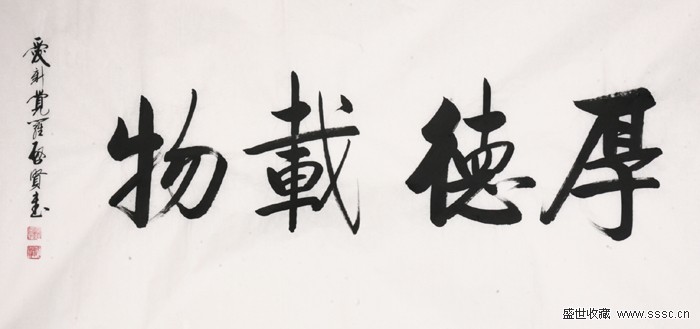 厚德載物
愛新覺羅啟賢書
盛世收藏 www.sssc.cn